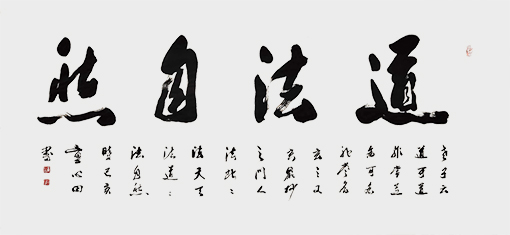 道法自然
老子云
道可道
非常道
名可名
非常名
玄之又
玄眾妙
之門人
法地〻
法天天
法道〻
法自然
時己亥
童心田